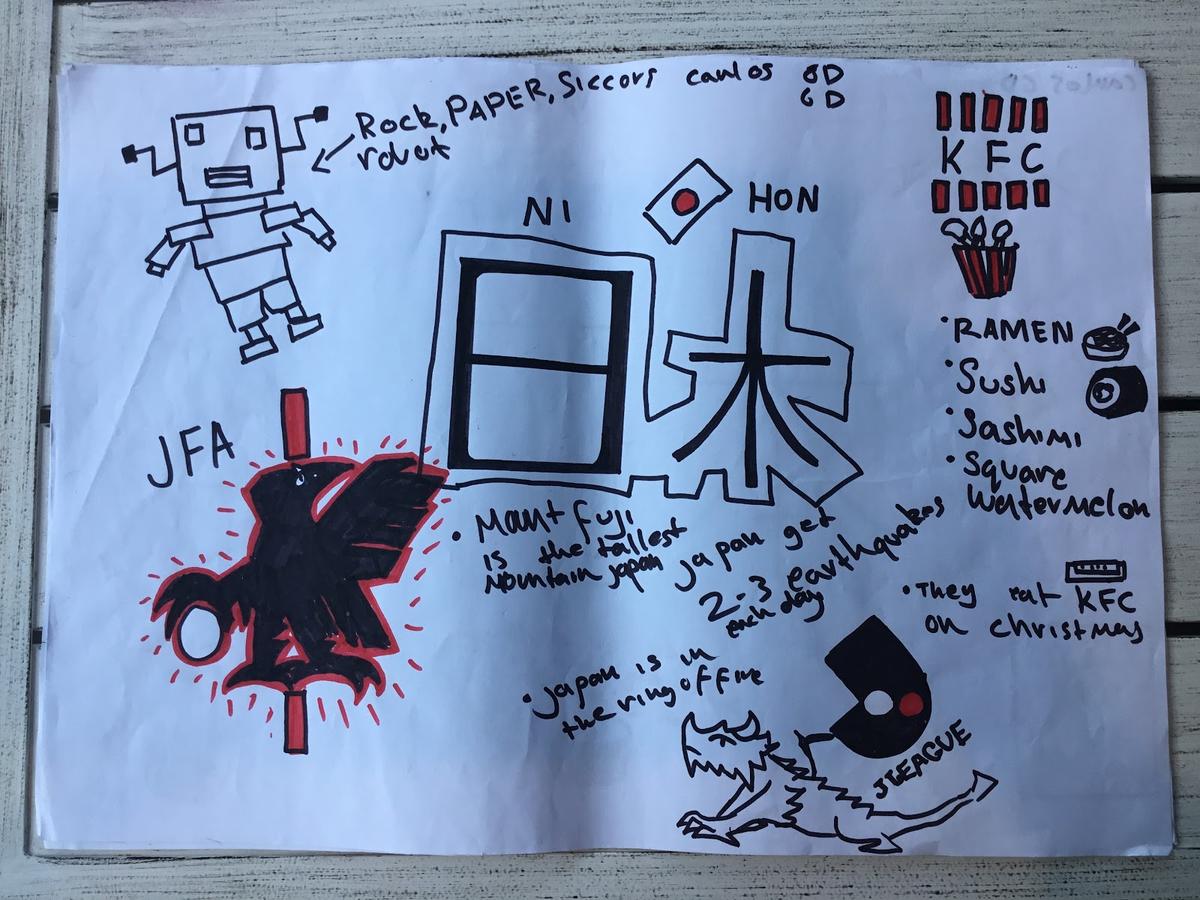 Rock, PAPER, Siccors carlos 8D
robot
6D
KFC
NI
HON
日木
RAMEN
Sushi
Sashimi
Square
Watermelon
JFA
Mount fuji
is the tallest
Mountain japan
japan get
2-3 earthquakes
each day
They eat KFC
on christmas
japan is in
the ring of fire
JLEAGUE